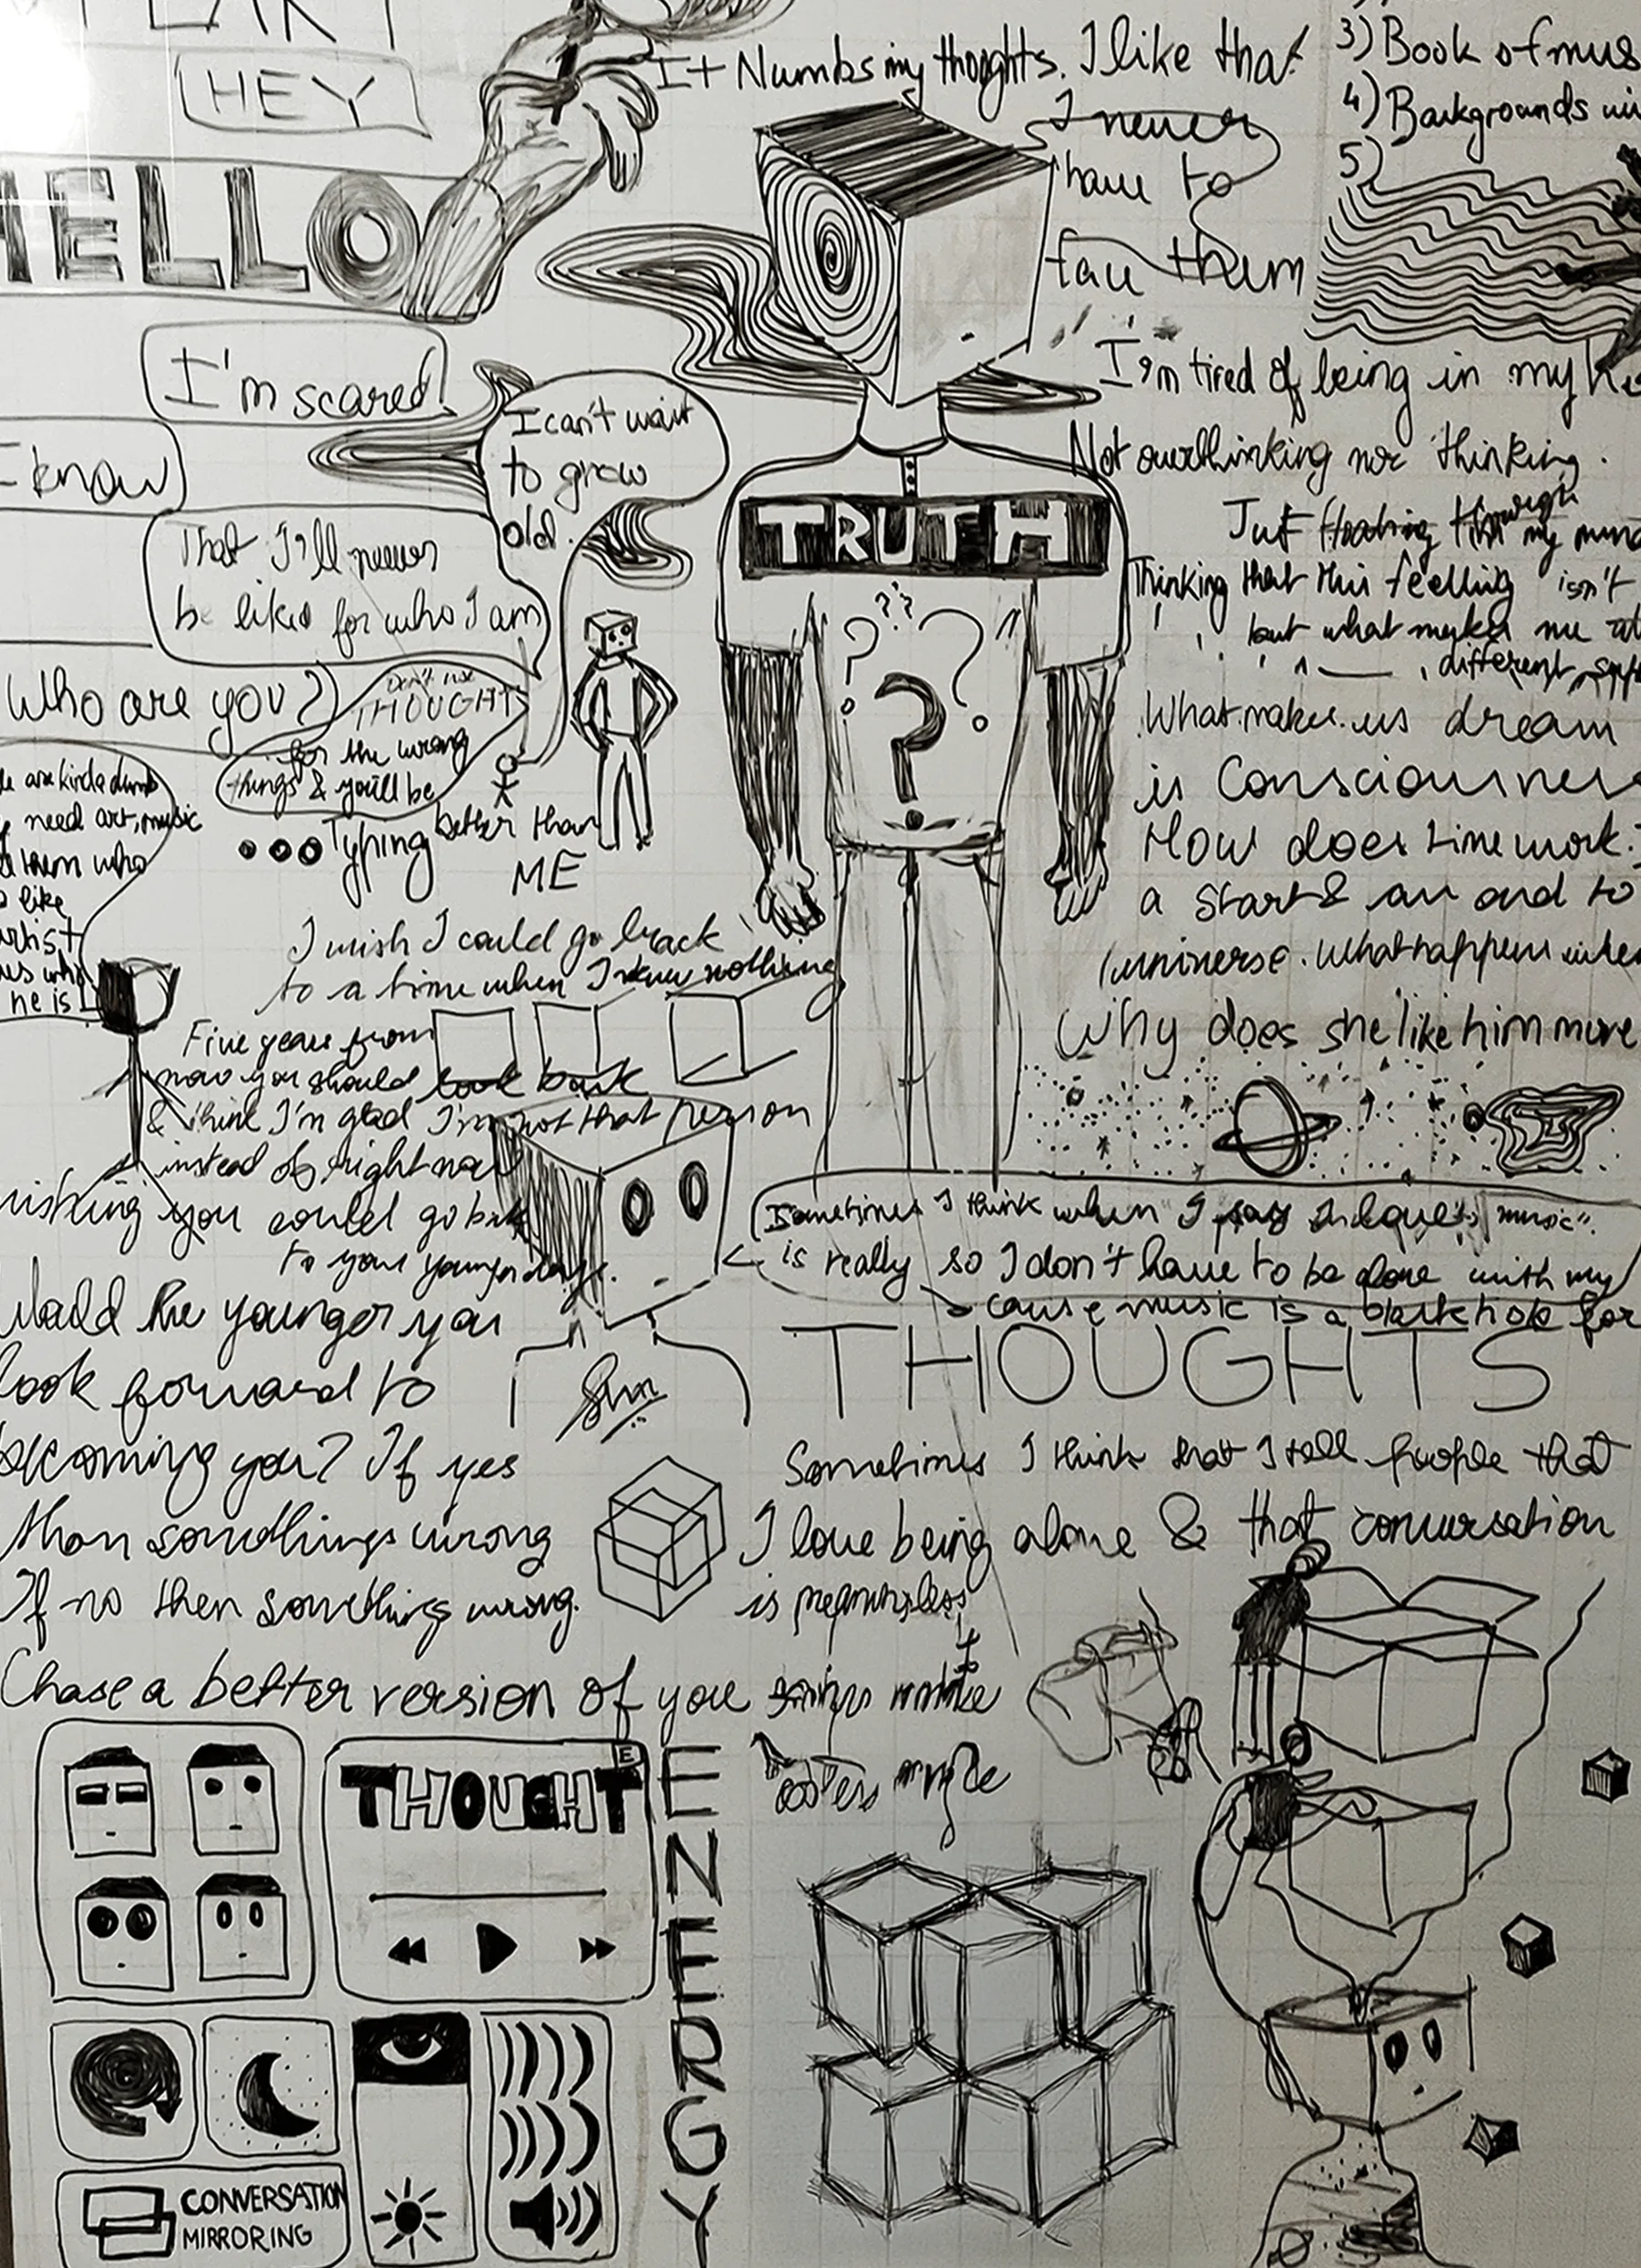 HEY
HELLO
I'm scared
I know
That I'll never
be liked for who I am
Who are you?
It Numbs my thoughts. I like that
I never
have to
face them
3) Book of mus
4) Backgrounds wi
5)
I can't wait
to grow
old.
I'm tired of being in my he
Not overthinking nor thinking.
Just floating through my mind
Thinking that this feelling isn't
but what makes me
different
TRUTH
? ? ? ? ?
What makes us dream
is Consciousness
How does time work?
a start & an end to
universe. What happens when
Why does she like him more
Don't use
THOUGHT
for the wrong
things & you'll be
better than
ME
Typing
are kinda dumb
need art, music
them who
like
artist
who
he is
I wish I could go back
to a time when I knew nothing
Five years from
now you should look back
& think I'm glad I'm not that person
instead of right now
wishing you could go back
to your younger days.
Would the younger you
look forward to
becoming you? If yes
then somethings wrong
If no then somethings wrong.
Chase a better version of you
Sometimes I think when I say I love "music"
is really so I don't have to be alone with my
cause music is a black hole for
THOUGHTS
Sometimes I think that I tell people that
I love being alone & that conversation
is meaningless
E
THOUGHT
ENERGY
CONVERSATION
MIRRORING